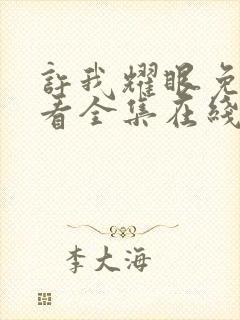 許我耀眼免
看全集在綫
李大海